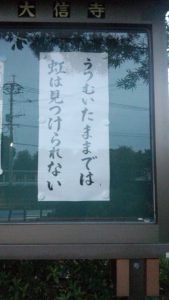 大信寺
うつむいたままでは
虹は見つけられない